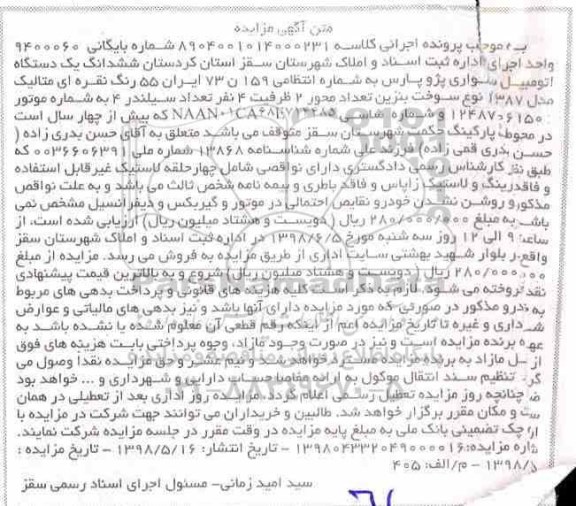 متن آگهی مزایده
به موجب پرونده اجرائی کلاسه ۸۹۰۴۰۰۱۰۱۴۰۰۰۲۳۱ شماره بایگانی ۹۴۰۰۰۶۰
واحد اجرای اداره ثبت اسناد و املاک شهرستان سقز استان کردستان ششدانگ یک دستگاه
اتومبیل سواری پژو پارس به شماره انتظامی ۱۵۹ ن ۷۳ ایران ۵۵ رنگ نقره ای متالیک
مدل ۱۳۸۷ نوع سوخت بنزین تعداد محور ۲ ظرفیت ۴ نفر تعداد سیلندر ۴ به شماره موتور
و شماره شاسی که بیش از چهار سال است
در محوطه پارکینگ حکمت شهرستان سقز متوقف می باشد متعلق به آقای حسن بدری زاده (
حسن بدری قمی زاده) فرزند علی شماره شناسنامه ۱۳۸۶۸ شماره ملی ۰۰۳۶۶۰۶۳۹۱ که
طبق نظر کارشناس رسمی دادگستری دارای نواقصی شامل چهار حلقه لاستیک غیر قابل استفاده
و فاقد رینگ و لاستیک زاپاس و فاقد باطری و بیمه نامه شخص ثالث می باشد و به علت نواقص
مذکور و روشن نشدن خودرو نقایص احتمالی در موتور و گیربکس و دیفرانسیل مشخص نمی
باشد به مبلغ ۲۸۰/۰۰۰/۰۰۰ ریال (دویست و هشتاد میلیون ریال) ارزیابی شده است. از
ساعت ۹ الی ۱۲ روز سه شنبه مورخ ۱۳۹۸/۶/۵ در اداره ثبت اسناد و املاک شهرستان سقز
واقع در بلوار شهید بهشتی سایت اداری از طریق مزایده به فروش می رسد. مزایده از مبلغ
۲۸۰/۰۰۰/۰۰۰ ریال (دویست و هشتاد میلیون ریال) شروع و به بالاترین قیمت پیشنهادی
نقد فروخته می شود. لازم به ذکر است کلیه هزینه های قانونی و پرداخت بدهی های مربوط
به خودرو مذکور در صورتی که مورد مزایده دارای آنها باشد و نیز بدهی های مالیاتی و عوارض
شهرداری و غیره تا تاریخ مزایده اعم از اینکه رقم قطعی آن معلوم شده یا نشده باشد به
عهده برنده مزایده است و نیز در صورت وجود مازاد، وجوه پرداختی بابت هزینه های فوق
از محل مازاد به برنده مزایده مسترد خواهد شد و نیم عشر و حق مزایده نقدا وصول می
گردد. تنظیم سند انتقال موکول به ارائه مفاصا حساب دارایی و شهرداری و ... خواهد بود
ضمنا چنانچه روز مزایده تعطیل رسمی اعلام گردد مزایده روز اداری بعد از تعطیلی در همان
ساعت و مکان مقرر برگزار خواهد شد. طالبین و خریداران می توانند جهت شرکت در مزایده با
ارائه چک تضمینی بانک ملی به مبلغ پایه مزایده در وقت مقرر در جلسه مزایده شرکت نمایند.
شماره مزایده: ۱۳۹۸۰۴۳۳۲۰۴۹۰۰۰۰۱۶ - تاریخ انتشار: ۱۳۹۸/۵/۱۶ - تاریخ مزایده :
۱۳۹۸/ - م/الف: ۴۰۵
سید امید زمانی- مسئول اجرای اسناد رسمی سقز